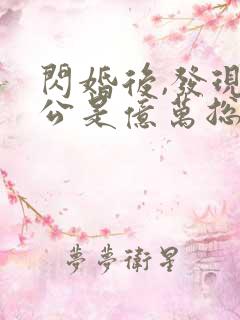 閃婚後,發現
公是億萬總
夢夢衛星